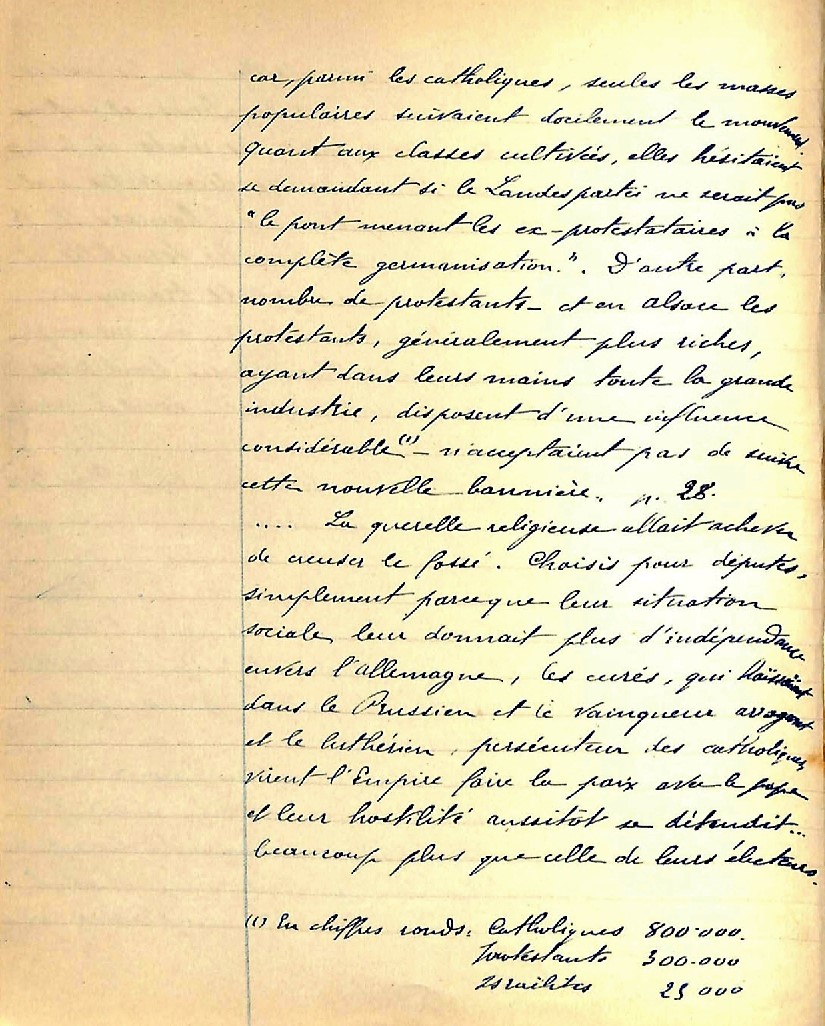 car, parmi les catholiques, seules les masses
populaires suivaient docilement le mouvement,
quant aux classes cultivées, elles hésitaient
se demandant si le Landespartei ne serait pas
"le pont menant les ex-protestataires à la
complète germanisation.". D'autre part,
nombre de protestants - et en alsace les
protestants, généralement plus riches,
ayant dans leurs mains toute la grande
industrie, disposent d'une influence
considérable (1) - n'acceptaient pas de suivre
cette nouvelle bannière. p. 28.
.... La querelle religieuse allait achever
de creuser le fossé. Choisis pour députés,
simplement parceque leur situation
sociale leur donnait plus d'indépendance
envers l'allemagne, les curés, qui haïssaient
dans le Prussien et le vainqueur arrogant
et le luthérien, persécuteur des catholiques,
virent l'Empire faire la paix avec le pape
et leur hostilité aussitôt se détendit...
beaucoup plus que celle de leurs électeurs.
(1) En chiffres ronds: Catholiques 800.000.
Protestants 300.000
Israélites 25 000